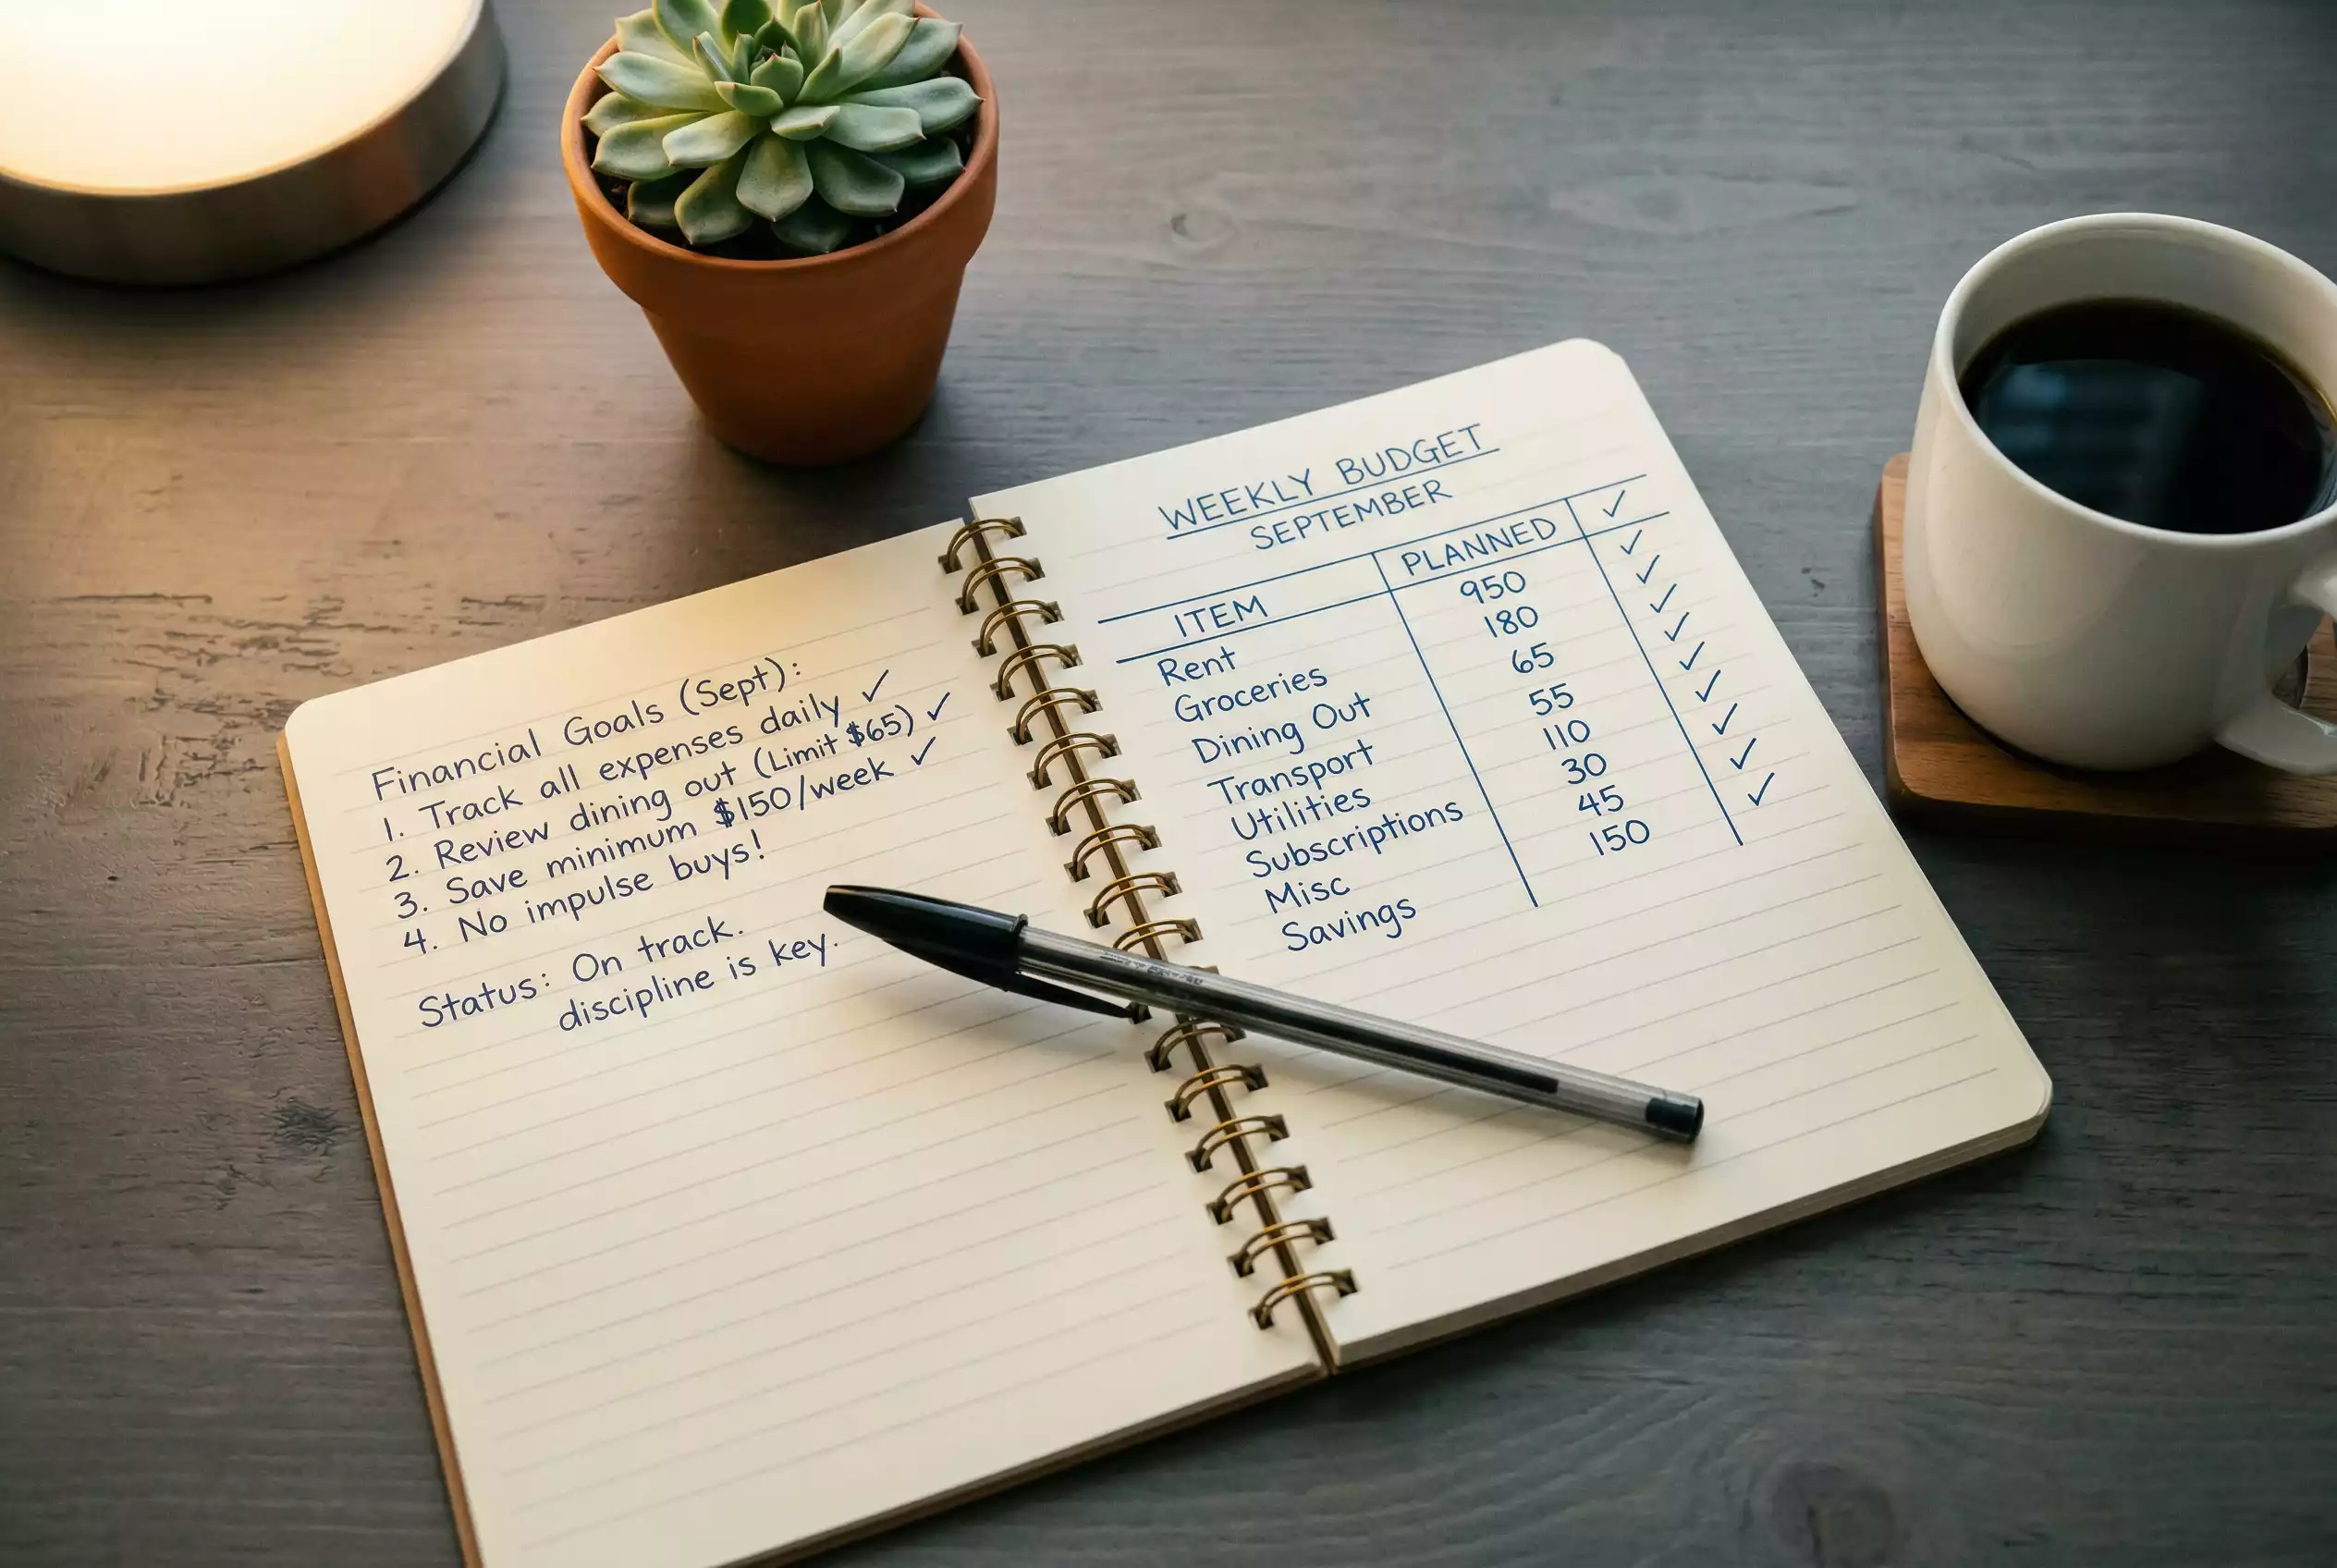 Financial Goals (Sept):
1. Track all expenses daily ✓
2. Review dining out (Limit $65) ✓
3. Save minimum $150/week ✓
4. No impulse buys!
Status: On track.
discipline is key.
WEEKLY BUDGET
SEPTEMBER
ITEM PLANNED ✓
Rent 950 ✓
Groceries 180 ✓
Dining Out 65 ✓
Transport 55 ✓
Utilities 110 ✓
Subscriptions 30 ✓
Misc 45 ✓
Savings 150 ✓